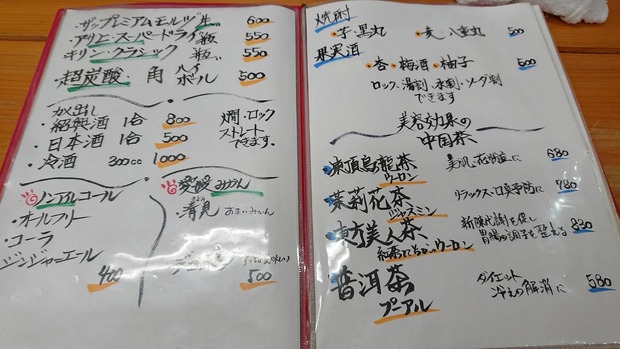 ・ザ・プレミアムモルツ 生 600
・アサヒ・スーパードライ 瓶 550
・キリン・クラシック 瓶 550
・超炭酸・角ハイボール 500
かめ出し
・紹興酒 1合 800
・日本酒 1合 500
・冷酒 300cc 1000
燗・ロック
ストレート
できます。
ノンアルコール
・オールフリー
・コーラ
ジンジャーエール
400
愛媛みかん
・清見 あまいみかん
500
焼酎
・芋・黒丸 ・麦・八重丸
果実酒 500
・杏・梅酒・柚子
ロック、湯割、水割、ソーダ割
できます
美容効果の
中国茶
凍頂烏龍茶 680
ウーロン
茉莉花茶 リラックス、口臭予防に 780
ジャスミン
東方美人茶 新陳代謝を促し 830
胃腸の調子を整える
普洱茶 ダイエット 580
冷えの解消に
プーアル